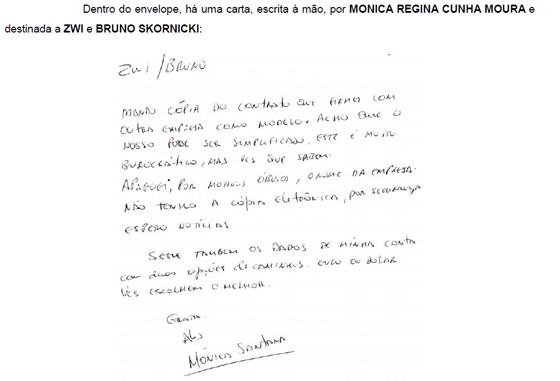 Dentro do envelope, há uma carta, escrita à mão, por MONICA REGINA CUNHA MOURA e
destinada a ZWI e BRUNO SKORNICKI:
ZWI/BRUNO
MANDO CÓPIA DO CONTRATO QUE FIRMEI COM
OUTRA EMPRESA COMO MODELO. ACHO QUE O
NOSSO PODE SER SIMPLIFICADO. ESTE É MUITO
BUROCRÁTICO, MAS VCS QUE SABEM.
APAGUEI, POR MOTIVOS ÓBVIOS, O NOME DA EMPRESA.
NÃO TENHO A CÓPIA ELETRÔNICA, POR SEGURANÇA
ESPERO NOTÍCIAS
SEGUE TAMBÉM OS DADOS DE MINHA CONTA
COM DUAS OPÇÕES DE CAMINHOS. EURO OU DOLAR
VCS ESCOLHEM O MELHOR.
GRATA
ABS
MÔNICA SANTANA